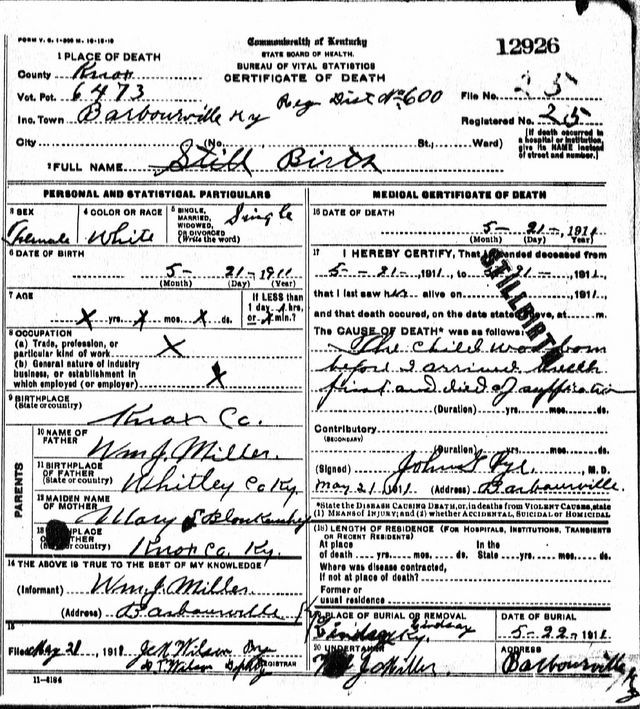 FORM V. S. 1-300 M. 10-15-10
Commonwealth of Kentucky
STATE BOARD OF HEALTH.
BUREAU OF VITAL STATISTICS
CERTIFICATE OF DEATH
12926
1 PLACE OF DEATH
County Knox
Vot. Pct. 6473
Reg Dist No 600
File No. 25
Inc. Town Barbourville Ky
Registered No. 25
City (No. St.; Ward)
[If death occurred in
a hospital or institution,
give its NAME instead
of street and number.]
2 FULL NAME Still Birth
PERSONAL AND STATISTICAL PARTICULARS
3 SEX
Female
4 COLOR OR RACE
White
5 SINGLE,
MARRIED,
WIDOWED,
OR DIVORCED
(Write the word)
Single
6 DATE OF BIRTH
5- 21-1911
(Month) (Day) (Year)
7 AGE
X yrs. X mos. X ds.
If LESS than
1 day hrs.
or X min.?
8 OCCUPATION
(a) Trade, profession, or
particular kind of work X
(b) General nature of industry
business, or establishment in
which employed (or employer) X
9 BIRTHPLACE
(State or country)
Knox Co.
PARENTS
10 NAME OF
FATHER
Wm J. Miller.
11 BIRTHPLACE
OF FATHER
(State or country)
Whitley Co Ky.
12 MAIDEN NAME
OF MOTHER
Mary
(State or country)
Knox Co. Ky.
14 THE ABOVE IS TRUE TO THE BEST OF MY KNOWLEDGE
(Informant) Wm J. Miller
(Address) Barbourville Ky
15
Filed May 21, 1911 Wilson
D T Wilson REGISTRAR
11-6184
MEDICAL CERTIFICATE OF DEATH
16 DATE OF DEATH
5- 21-, 1911
(Month) (Day) (Year)
17 I HEREBY CERTIFY, That I attended deceased from
5-21-, 1911, to 5-21-, 1911,
that I last saw h alive on , 1911,
and that death occured, on the date stated above, at m.
STILLBIRTH
The CAUSE OF DEATH* was as follows:
The child was born
before I arrived breech
first and died of suffication
(Duration) yrs. mos. ds.
Contributory
(SECONDARY)
(Duration) yrs. mos. ds.
(Signed) John G Pyle, M. D.
May 21 1911 (Address) Barbourville.
*State the DISEASE CAUSING DEATH, or, in deaths from VIOLENT CAUSES, state
(1) MEANS OF INJURY; and (2) whether ACCIDENTAL, SUICIDAL or HOMICIDAL
(18) LENGTH OF RESIDENCE (FOR HOSPITALS, INSTITUTIONS, TRANSIENTS
OR RECENT RESIDENTS)
At place
of death yrs. mos. ds.
In the
State yrs. mos. ds.
Where was disease contracted,
if not at place of death?
Former or
usual residence
PLACE OF BURIAL OR REMOVAL
Lindsay Ky. Lindsay
DATE OF BURIAL
5-22-, 1911
20 UNDERTAKER
J Miller.
ADDRESS
Barbourville Ky